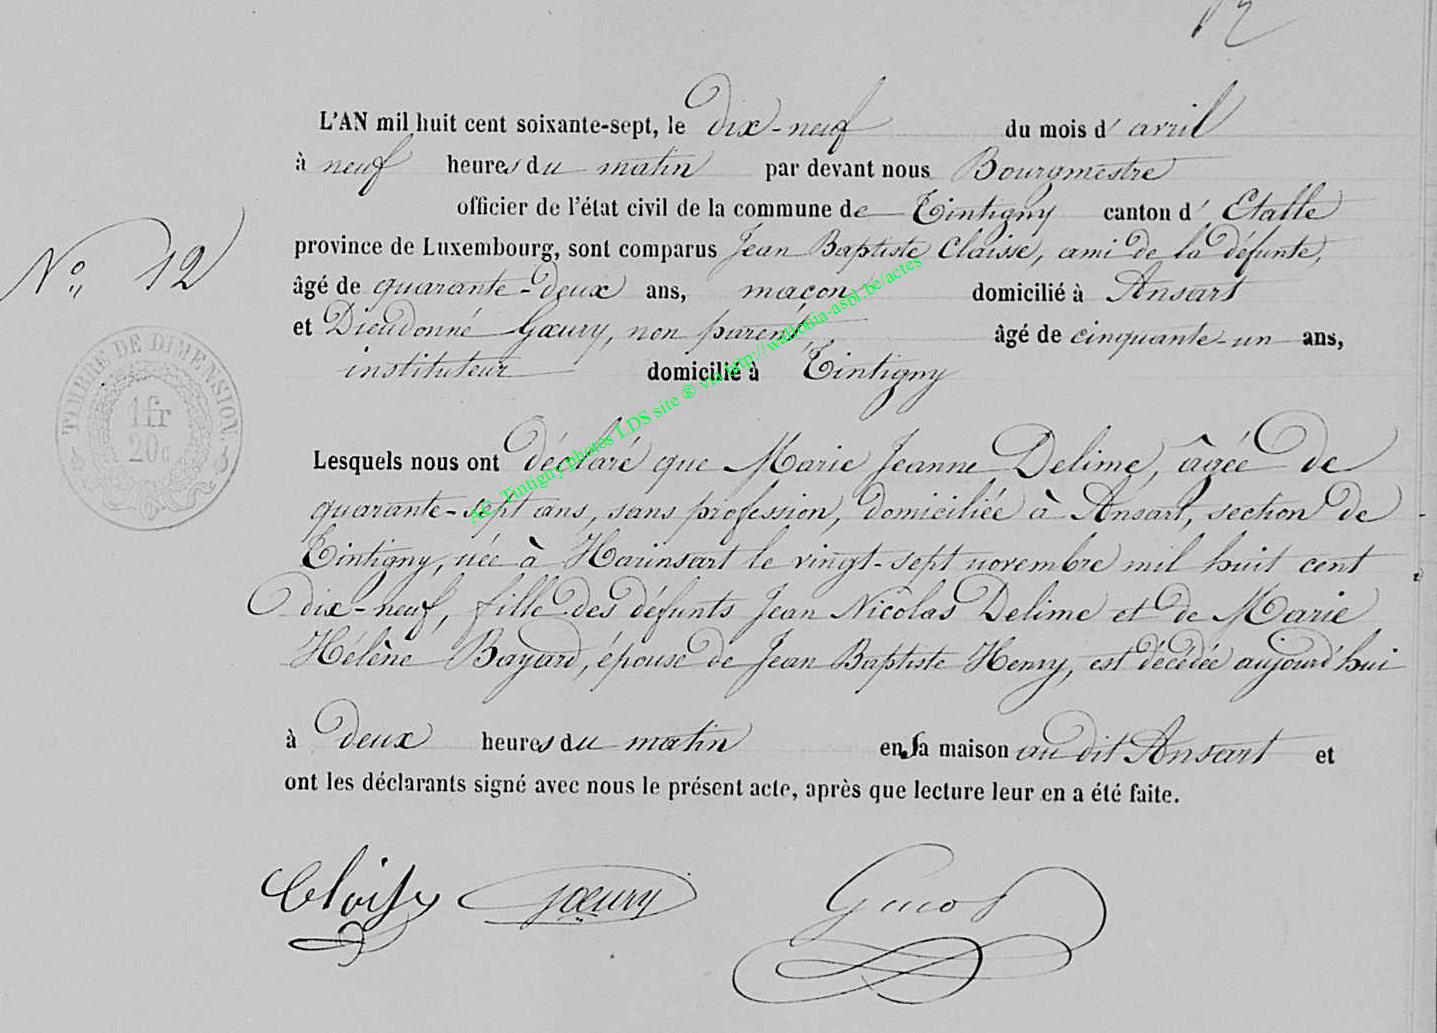 12
L'AN mil huit cent soixante-sept, le dix-neuf du mois d' avril
à neuf heures du matin par devant nous Bourgmestre
officier de l'état civil de la commune de Tintigny canton d' Etalle
No 12
province de Luxembourg, sont comparus Jean Baptiste Claisse, ami de la défunte,
âgé de quarante-deux ans, maçon domicilié à Ansart
et Dieudonné Gœury, non parent, âgé de cinquante-un ans,
instituteur domicilié à Tintigny
TIMBRE DE DIMENSION.
1 fr
20c
AC Tintigny photos LDS site ® via http://wallonia-asbl.be/actes
Lesquels nous ont déclaré que Marie Jeanne Delime, âgée de
quarante-sept ans, sans profession, domiciliée à Ansart, section de
Tintigny, née à Harinsart le vingt-sept novembre mil huit cent
dix-neuf, fille des défunts Jean Nicolas Delime et de Marie
Hélène Bayard, épouse de Jean Baptiste Henry, est décédée aujourd'hui
à deux heures du matin en sa maison au dit Ansart et
ont les déclarants signé avec nous le présent acte, après que lecture leur en a été faite.
Gœury